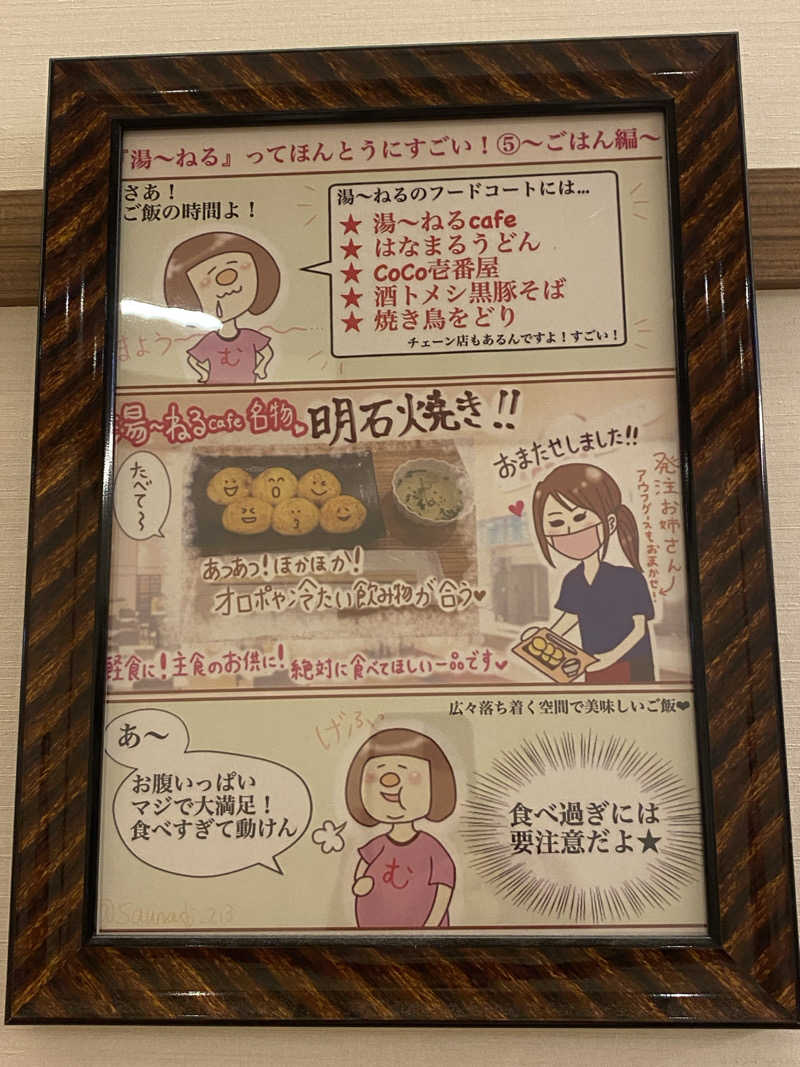 『湯〜ねる』ってほんとうにすごい！⑤〜ごはん編〜
さあ！
ご飯の時間よ！
湯〜ねるのフードコートには…
★ 湯〜ねるcafe
★ はなまるうどん
★ CoCo壱番屋
★ 酒トメシ黒豚そば
★ 焼き鳥をどり
チェーン店もあるんですよ！すごい！
む
湯〜ねるcafe 名物 明石焼き!!
たべて〜
おまたせしました!!
発注お姉さん
アウフグースもおまかせ！
あっあっ！ほかほか！
オロポや冷たい飲み物が合う♥
軽食に！主食のお供に！絶対に食べてほしい一品です♥
広々落ち着く空間で美味しいご飯❤
げふぃ
あ〜
お腹いっぱい
マジで大満足！
食べすぎて動けん
む
食べ過ぎには
要注意だよ★